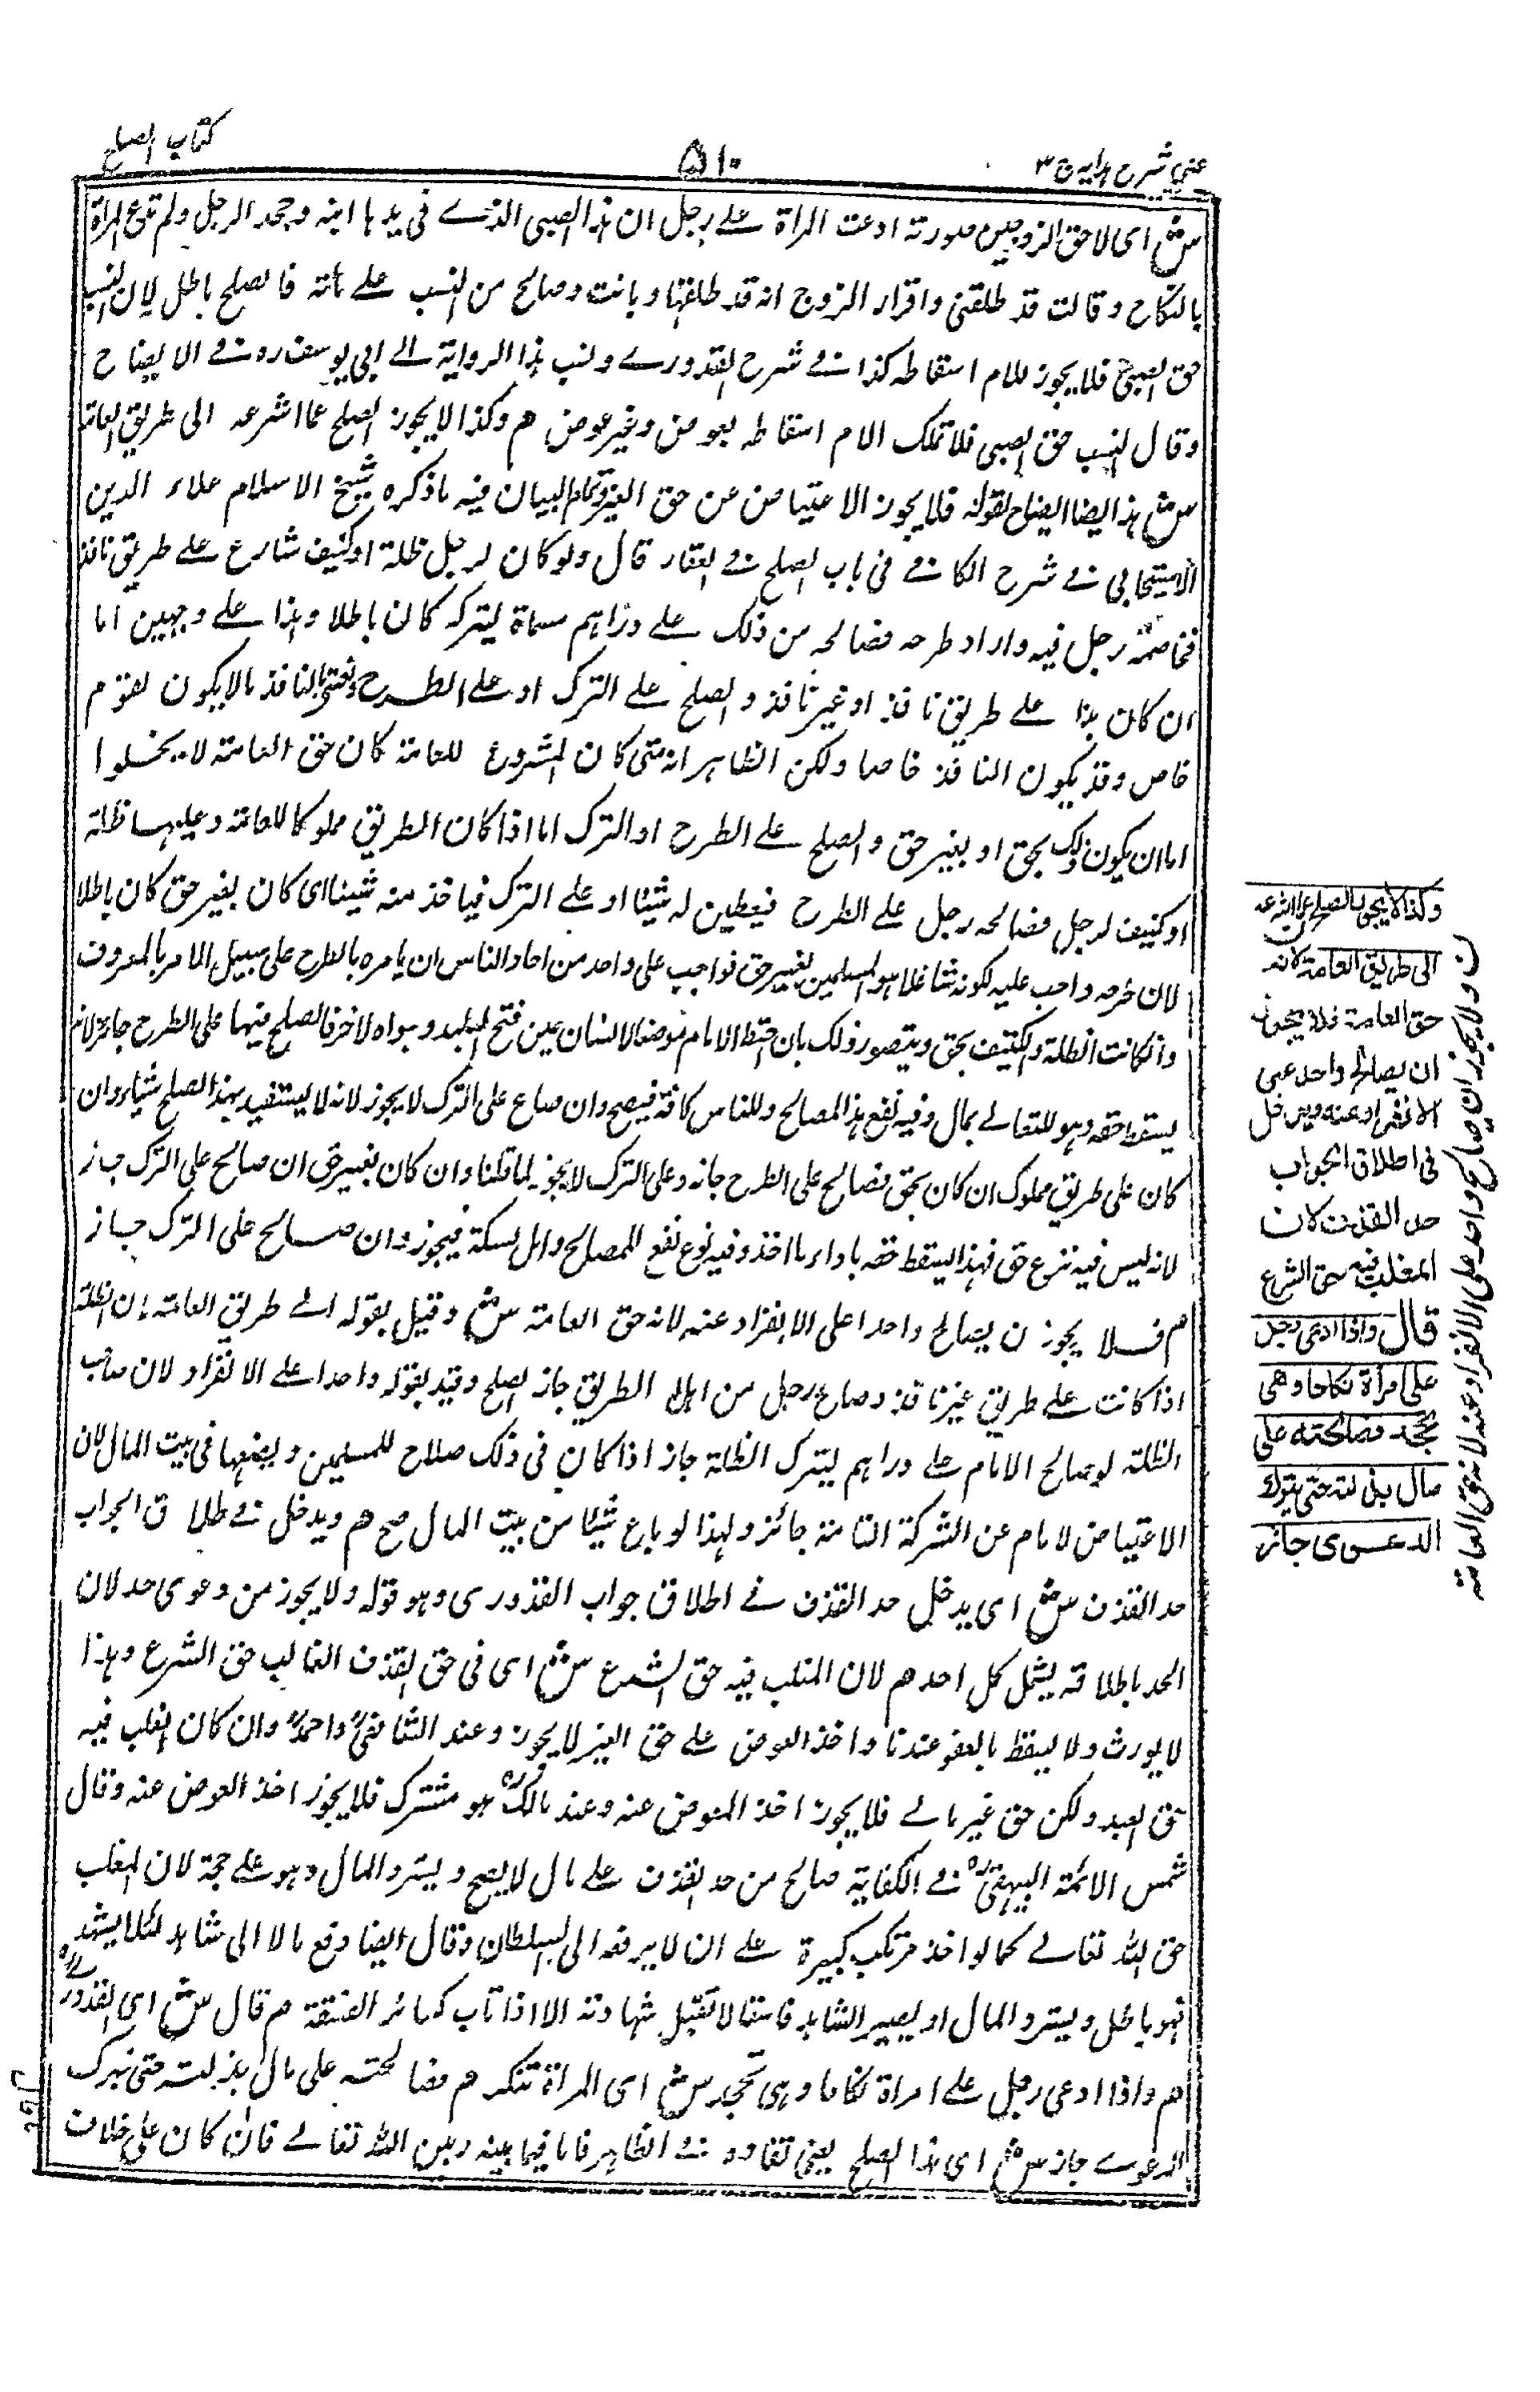 عيني شرح هدايه ج ٣
٥١٠
كتاب الصلح
ش اى لا حق الزوجين صورته ادعت المرأة على رجل ان هذا الصبى الذى فى يدها ابنه وجحد الرجل ولم تدع المرأة
بالنكاح وقالت قد طلقنى واقرار الزوج انه قد طلقها وبانت وصالح من النسب على مأته فالصلح باطل لان النسب
حق الصبى فلا يجوز للام اسقاطه كذا فى شرح القدورى ونسب هذا الرواية الى ابى يوسف ره فى الايضاح
وقال النسب حق الصبى فلا تملك الام اسقاطه بعوض وغير عوض م وكذا لا يجوز الصلح عما اشرعه الى طريق العامة
ش هذا ايضا ايضاح لقوله فلا يجوز الاعتياض عن حق الغير وتمام البيان فيه ما ذكره شيخ الاسلام علاء الدين
الاسبيجابى فى شرح الكافى فى باب الصلح فى العقار قال ولو كان لرجل ظلة او كنيف شارع على طريق نافذ
فخاصمه رجل فيه واراد طرحه فصالحه من ذلك على دراهم مسماة ليتركه كان باطلا وهذا على وجهين اما
ان كان هذا على طريق نافذ او غير نافذ والصلح على الترك او على الطرح ونعنى بالنافذ ما لا يكون لقوم
خاص وقد يكون النافذ خاصا ولكن الظاهر انه متى كان المشروع للعامة كان حق العامة لا يخلوا
اما ان يكون ذلك بحق او بغير حق والصلح على الطرح او الترك اما اذا كان الطريق مملوكا للعامة وعليها ظلة
او كنيف لرجل فصالحه رجل على الطرح فيعطين له شيئا او على الترك فياخذ منه شيئا اى كان بغير حق كان باطلا
لان طرحه واجب عليه لكونه شاغلا هو المسلمين بغير حق فواجب على واحد من احاد الناس ان يامره بالطرح على سبيل الامر بالمعروف
وان كانت الظلة والكنيف بحق ويتصور ذلك بان اختط الامام موضعا لانسان عين فتح البلد وهواه لاخر فالصلح فيها على الطرح جائز لانه
يسقط حقه وهو لله تعالى بمال وفيه نفع هذا المصالح وللناس كافة فيصح وان صالح على الترك لا يجوز لانه لا يستفيد بهذا الصلح شيئا وان
كان على طريق مملوك ان كان بحق فصالح على الطرح جاز وعلى الترك لا يجوز لما قلنا وان كان بغير حق ان صالح على الترك جاز
لانه ليس فيه نزع حق فهذا يسقط حقه باداء ما اخذ وفيه نوع نفع للمصالح واهل السكة فيجوز وان صالح على الترك جاز
م فلا يجوز ان يصالح واحدا على الانفراد عنه لانه حق العامة ش وقيل بقوله الى طريق العامة لان الظلة
اذا كانت على طريق غير نافذ وصالح رجل من اهل الطريق جاز الصلح وقيد بقوله واحدا على الانفراد لان صاحب
الظلة لو صالح الامام على دراهم ليترك الظلة جاز اذا كان فى ذلك صلاح للمسلمين ويضعها فى بيت المال لان
الاعتياض لامام عن الشركة التامة جائز ولهذا لو باع شيئا من بيت المال صح م ويدخل فى اطلاق الجواب
حد القذف ش اى يدخل حد القذف فى اطلاق جواب القدورى وهو قوله ولا يجوز من دعوى حد لان
الحد باطلاقه يشمل كل احد م لان المغلب فيه حق الشرع ش اى فى حق القذف الغالب حق الشرع وهذا
لا يورث ولا يسقط بالعفو عندنا واخذ العوض على حق الغير لا يجوز وعند الشافعى واحمد وان كان المغلب فيه
حق العبد ولكن حق غير مالى فلا يجوز اخذ العوض عنه وعند مالك ره هو مشترك فلا يجوز اخذ العوض عنه وقال
شمس الائمة البيهقى ره فى الكفاية صالح من حد القذف على مال لا يصح ويسترد المال وهو على حجة لان المغلب
حق الله تعالى كما لو اخذ مرتكب كبيرة على ان لا يرفعه الى السلطان وقال ايضا دفع مالا الى شاهد لئلا يشهد
فهو باطل ويسترد المال او يصير الشاهد فاسقا لا تقبل شهادته الا اذا تاب كسائر الفسقة م قال ش اى القدورى ره
م واذا ادعى رجل على امرأة نكاحا وهى تجحد ش اى المرأة تنكر م فصالحته على مال بذلته حتى يترك
الدعوى جاز ش اى هذا الصلح يعنى نفاذه فى الظاهر فاما فيما بينه وبين الله تعالى فان كان على خلاف
وكذا لا يجوز الصلح عما اشرعه
الى طريق العامة لانه
حق العامة فلا يجوز
ان يصالح واحد على
الانفراد عنه ويدخل
فى اطلاق الجواب
حد القذف لان
المغلب فيه حق الشرع
قال واذا ادعى رجل
على امرأة نكاحا وهى
تجحد فصالحته على
مال بذلته حتى يترك
الدعوى جاز
ن ولا يجوز ان يصالح واحد على الانفراد عنه لانه حق العامة